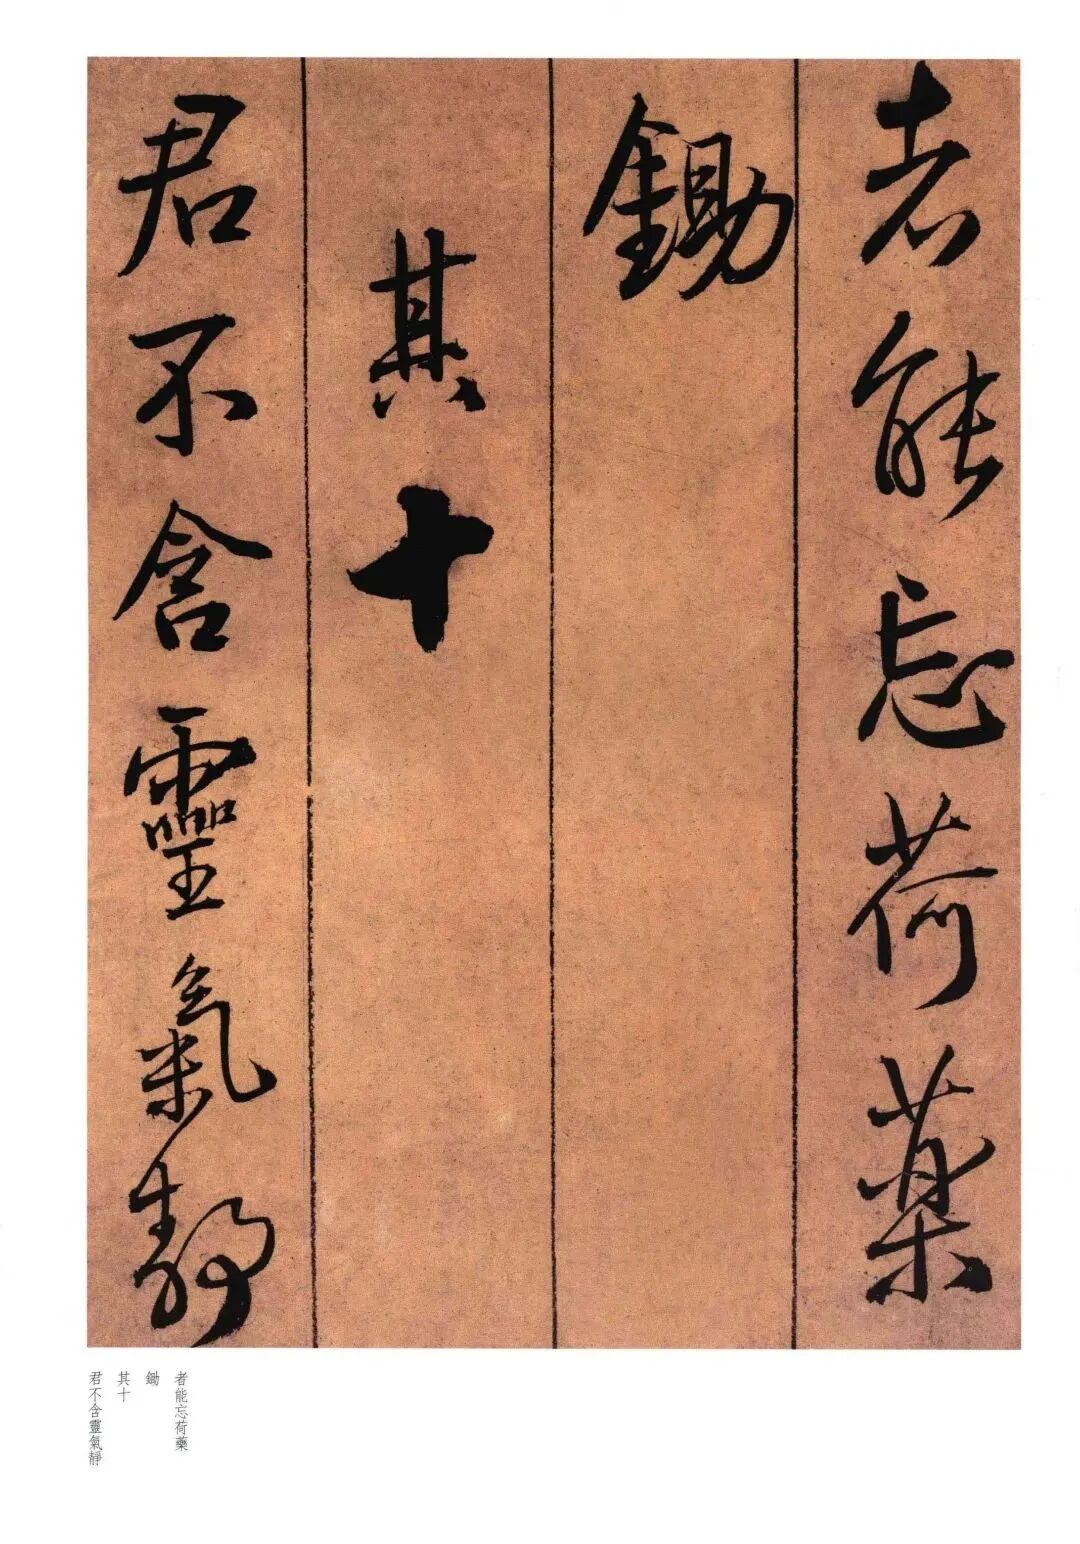 者能忘荷藥
鋤
其十
君不含靈氣靜
者能忘荷藥
鋤
其十
君不含靈氣靜